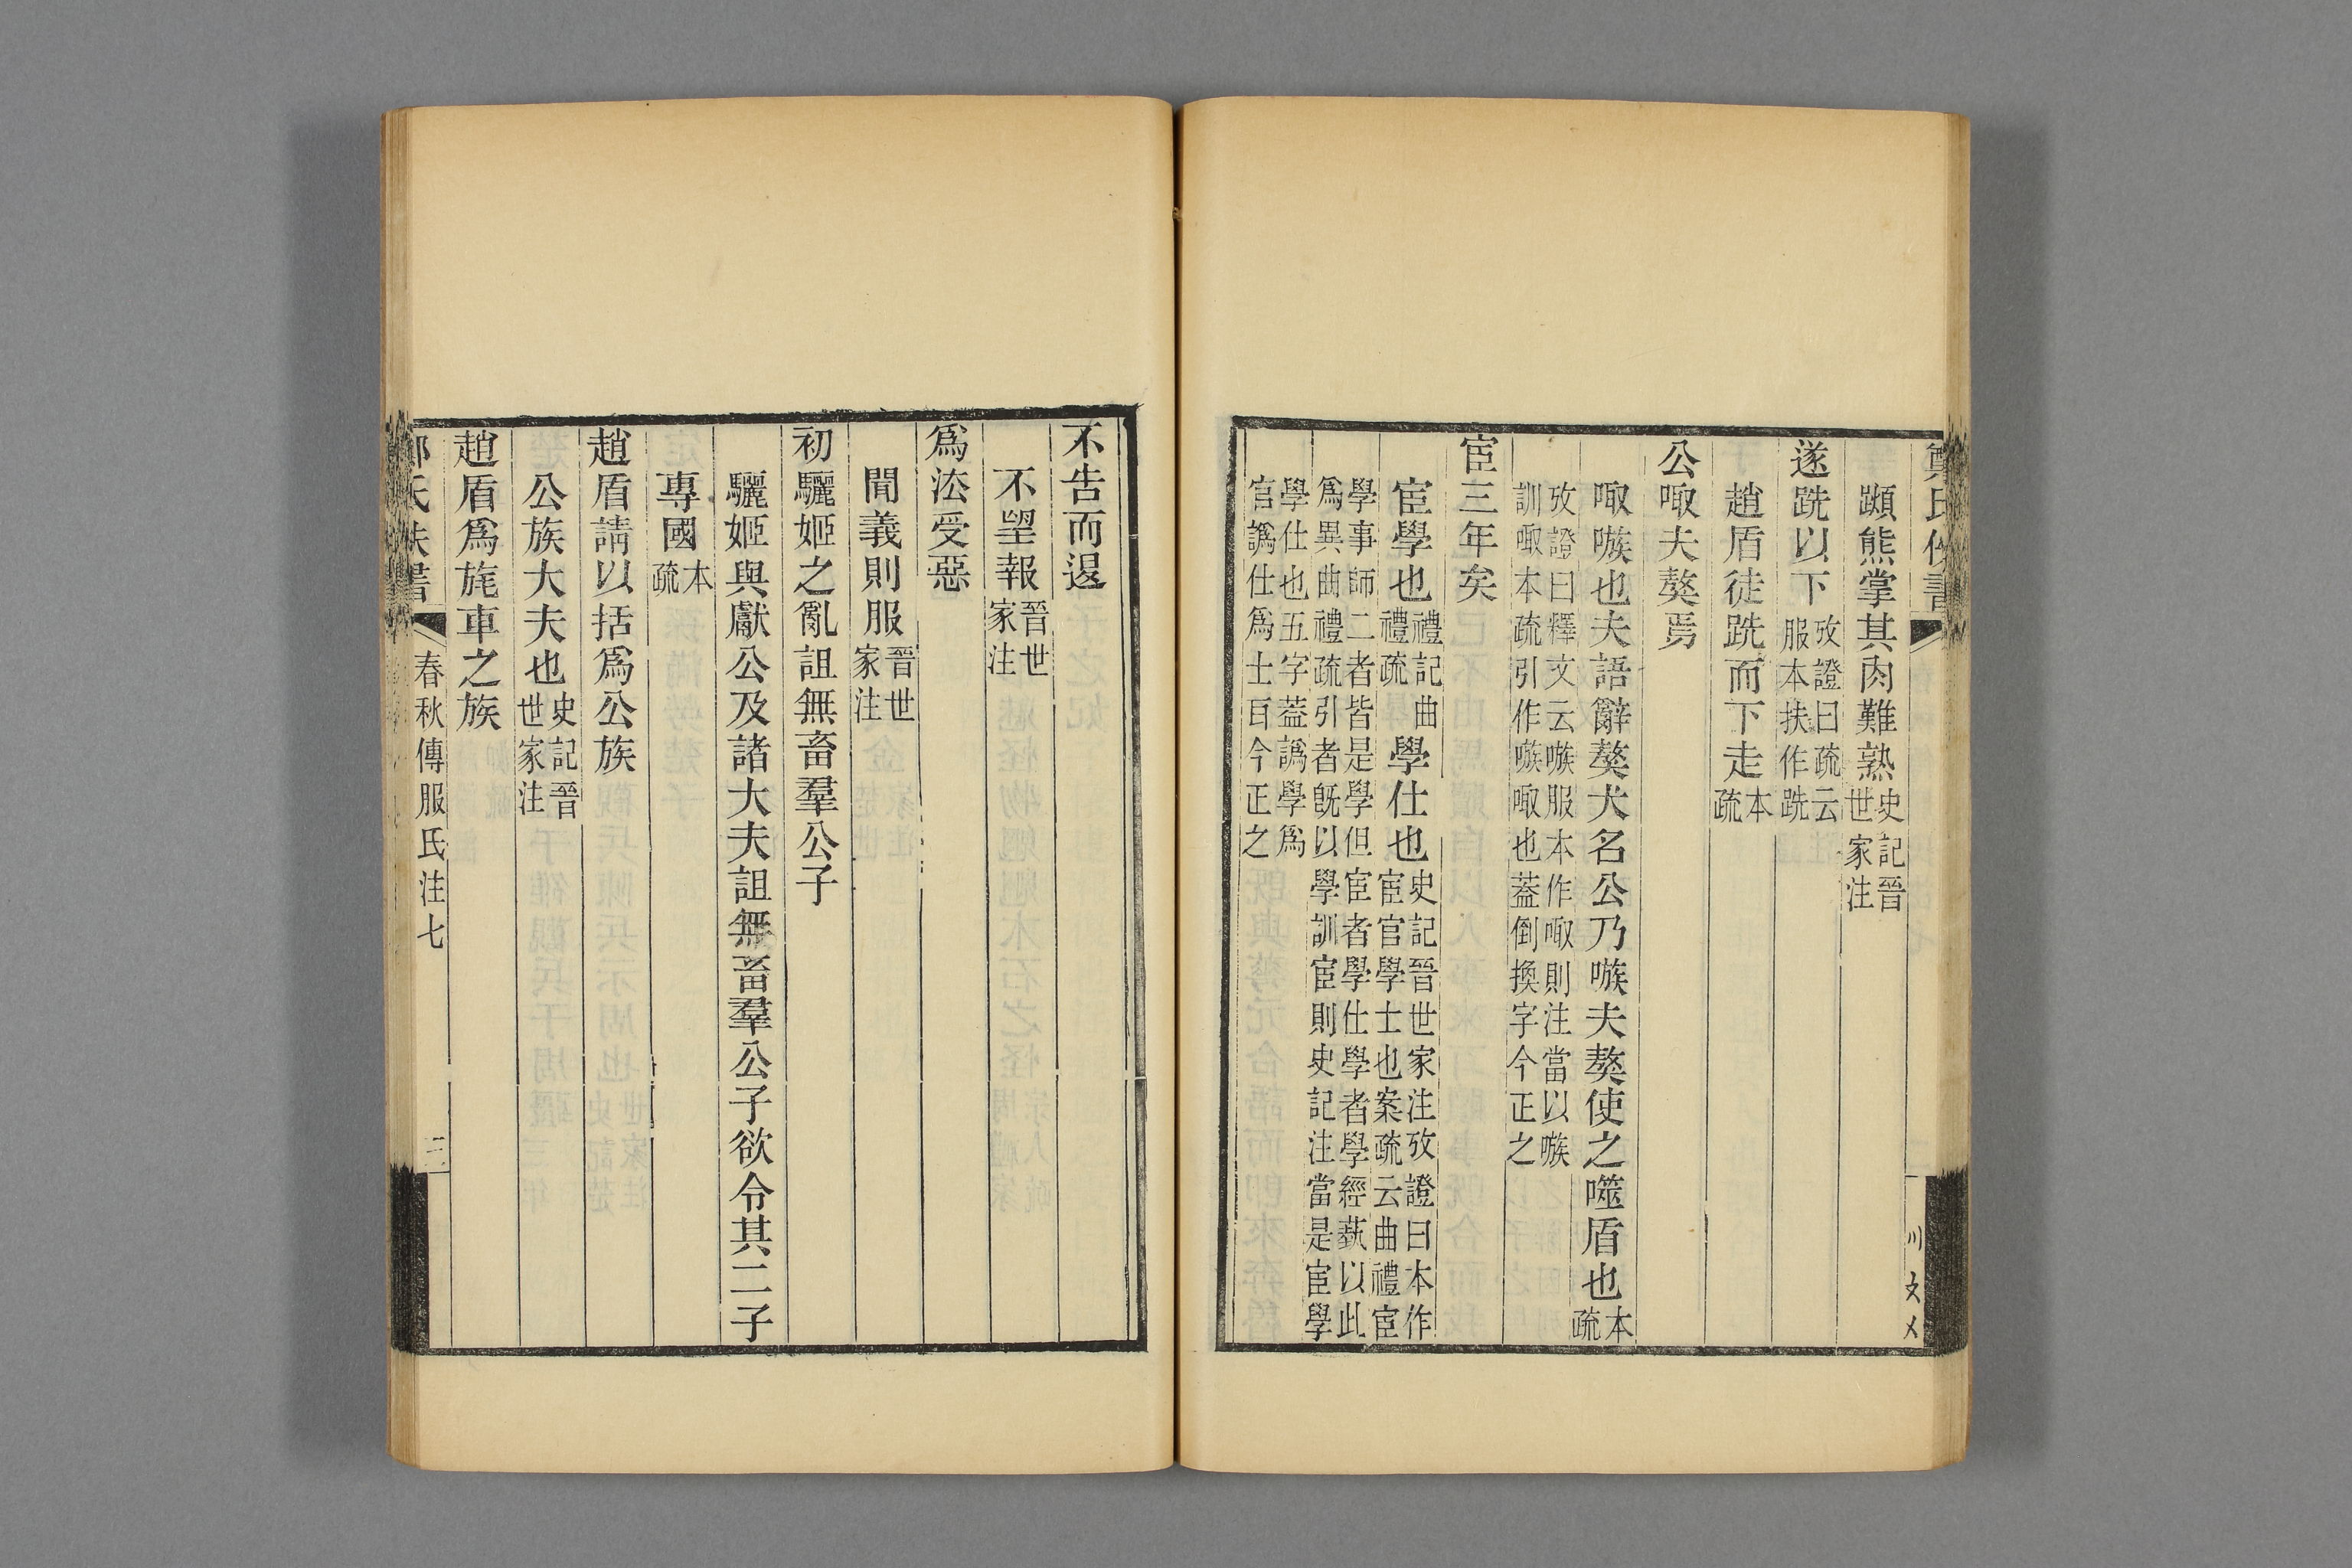 鄭氏佚書
蹞熊掌其肉難熟史記晉世家注
遂跣以下攷證曰疏云服本扶作跣
趙盾徒跣而下走本疏
公㖩夫獒焉
㖩嗾也夫語辭獒犬名公乃嗾夫獒使之噬盾也本疏
攷證曰釋文云嗾服本作㖩則注當以嗾
訓㖩本疏引作嗾㖩也蓋倒換字今正之
宦三年矣
宦學也禮記曲禮疏學仕也史記晉世家注攷證曰本作宦官學士也案疏云曲禮宦
學事師二者皆是學但宦者學仕學者學經蓺以此
爲異曲禮疏引者旣以學訓宦則史記注當是宦學
學仕也五字蓋譌學爲
官譌仕爲士百今正之
不告而退
不望報晉世家注
爲法受惡
聞義則服晉世家注
初驪姬之亂詛無畜羣公子
驪姬與獻公及諸大夫詛無畜羣公子欲令其二子
專國本疏
趙盾請以括爲公族
公族大夫也史記晉世家注
趙盾爲旄車之族
春秋傳服氏注七